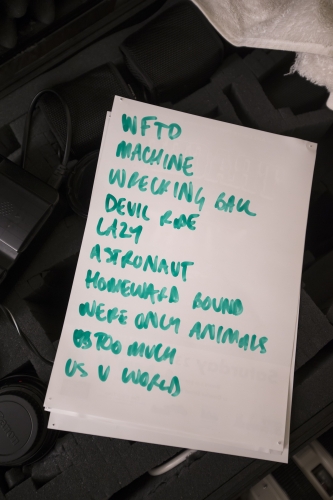 WFTD
MACHINE
WRECKING BALL
DEVIL RIDE
LAZY
ASTRONAUT
HOMEWARD BOUND
WERE ONLY ANIMALS
TOO MUCH
US V WORLD